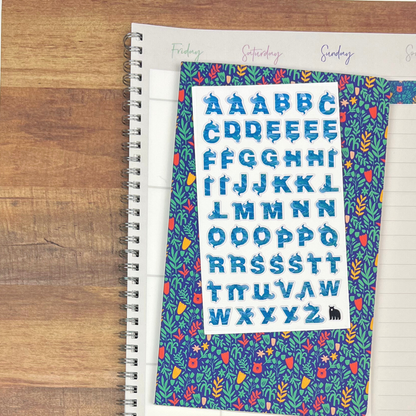 Friday Saturday Sunday
A A A B B C
C D D E E E E
F F G G H H I
I I J J K K L
L M M N N
O O O P P Q
R R S S S T T
T U U V A W
W X X X Z